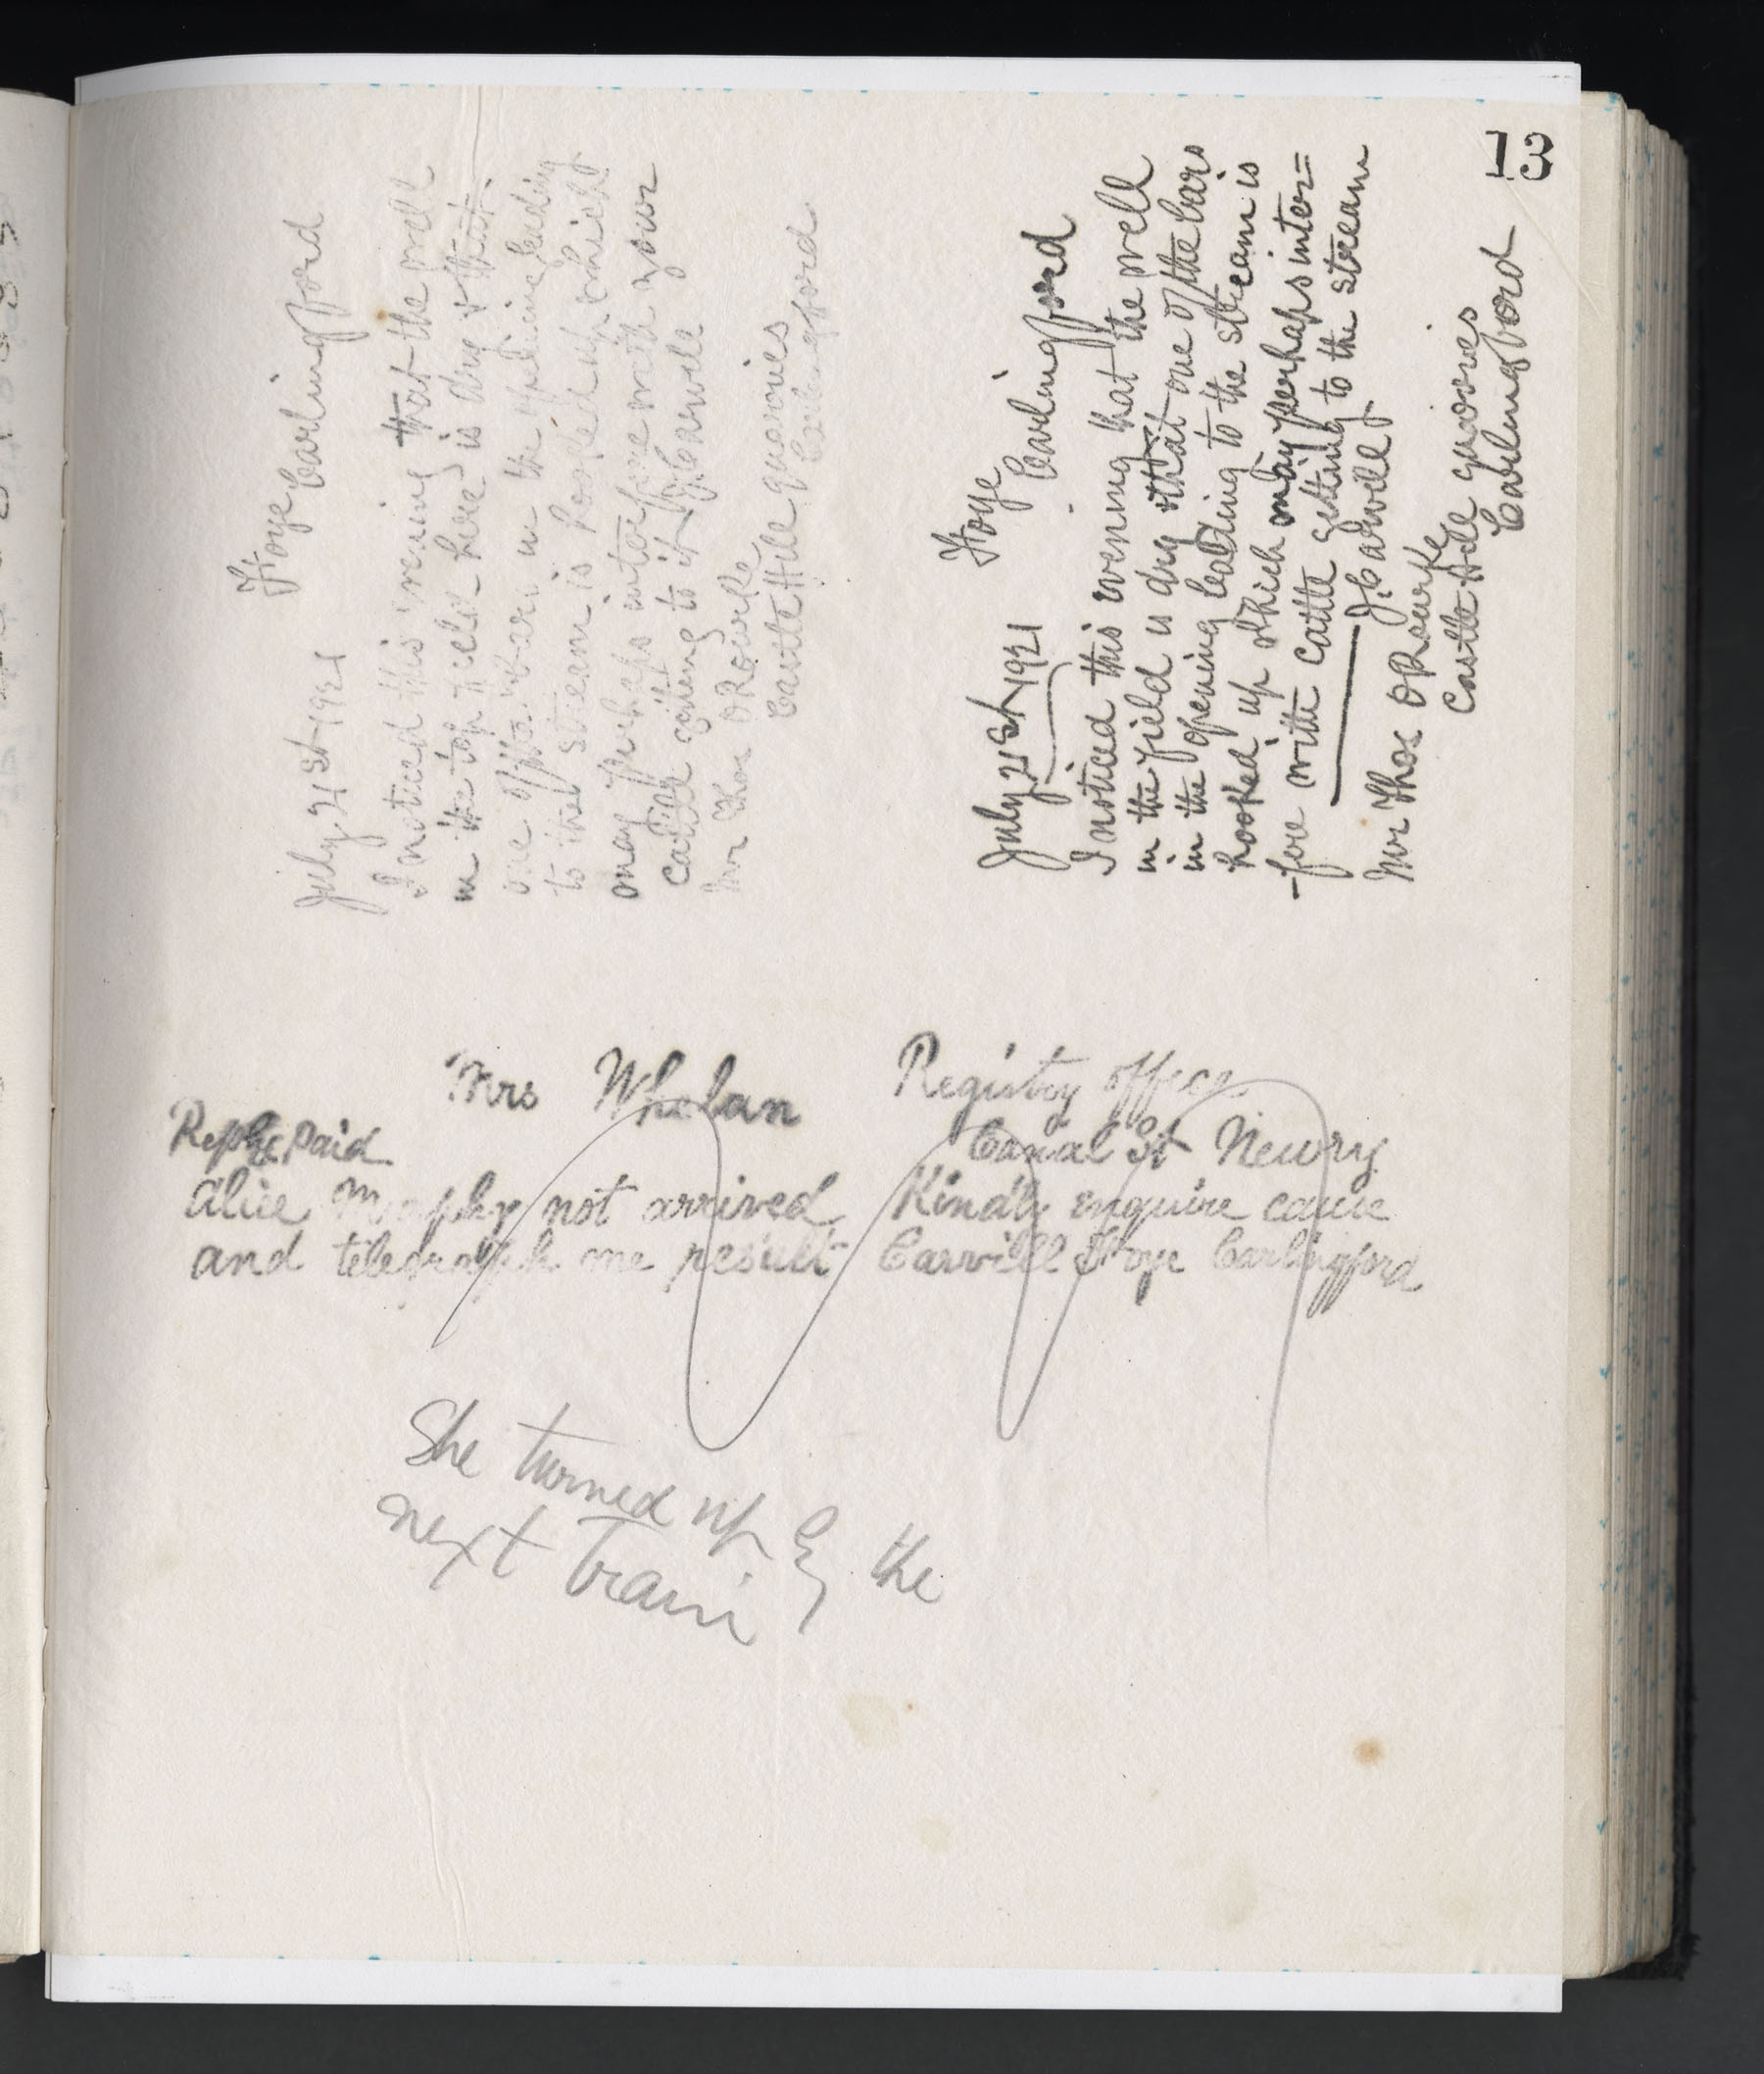 13
Foye
Carlingford
July 21st 1921
I noticed this evening that the well
in the top field here is dry & that
one of the bars in the opening leading
to the stream is hooked up which
may perhaps interfere with your
cattle getting to it J. Carvill
Mr Thos O Rourke
Castle Hill quarries
Carlingford
Foye
Carlingford
July 21st 1921
I noticed this evening that the well
in the field is dry & that one of the bars
in the opening leading to the stream is
hooked up which may perhaps inter=
-fere with cattle getting to the stream
J. Carvill
Mr Thos O Rourke
Castle Hill quarries
Carlingford
Mrs Whelan Registry office
Reply Paid Canal St Newry
Alice Murphy not arrived Kindly enquire cause
and telegraph me result Carvill Foye Carlingford
She turned up by the
next Train